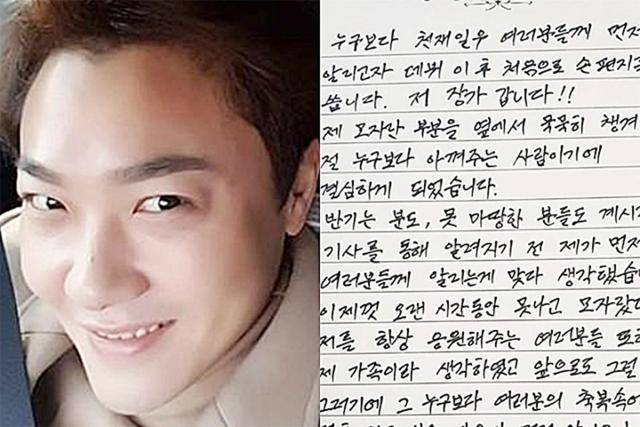 누구보다 첫재일우 여러분들께 먼저
알리고자 데뷔 이후 처음으로 손편지를
씁니다. 저 장가 갑니다!!
제 모자란 부분을 옆에서 묵묵히 챙겨
절 누구보다 아껴주는 사람이기에
결심하게 되었습니다.
반기는 분도, 못 마땅한 분들도 계시
기사를 통해 알려지기 전 제가 먼저
여러분들께 알리는게 맞다 생각했습
이제껏 오랜 시간동안 못나고 모자랐
저를 항상 응원해주는 여러분들 또
제 가족이라 생각하였고 앞으로도 그럴
그러기에 그 누구보다 여러분의 축복속에